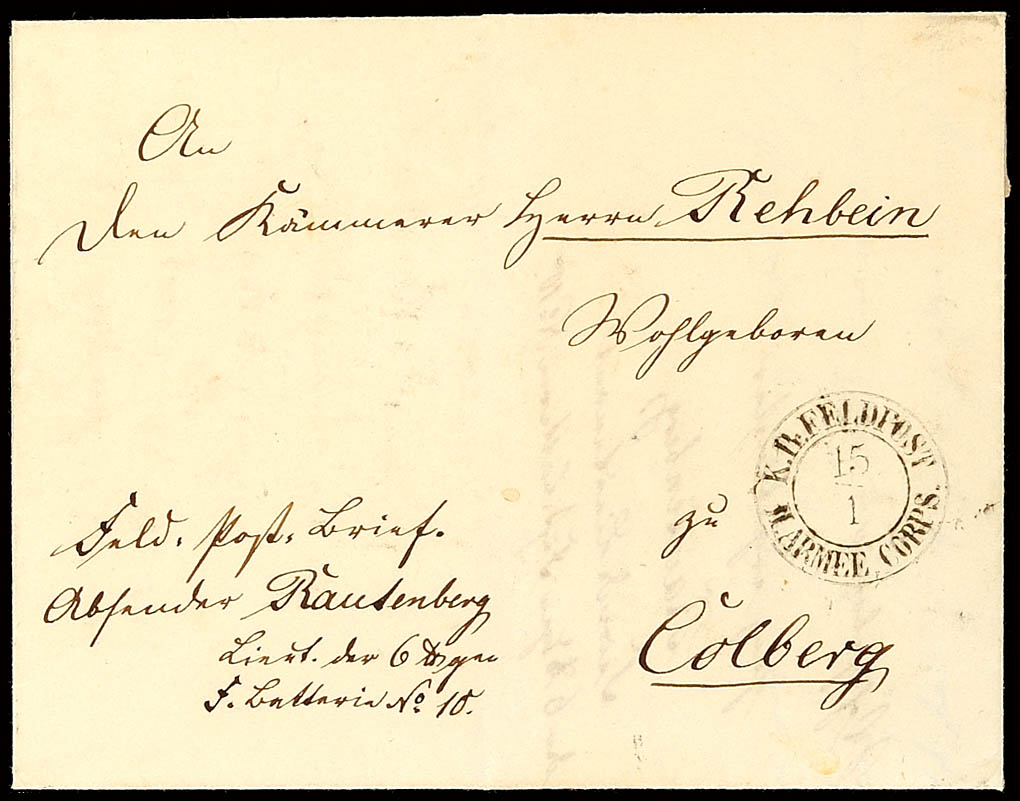 An
den Kämmerer Herrn Rehbein
Wohlgeboren
K. PR. FELDPOST
15
1
II. ARMEE CORPS.
Feld-Post-Brief.
zu
Absender Rautenberg
Colberg
Lieut. der 6
F. Batterie No. 10.